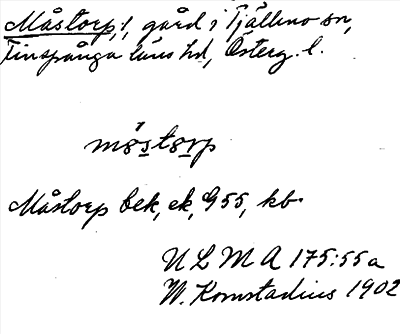 Måstorp, 1, gård i Tjällmo sn,
Finspånga läns hd, Österg. l.
måstorp
Måstorp bek, ek, G 55, kb.
U L M A 175:55 a
W. Komstadius 1902